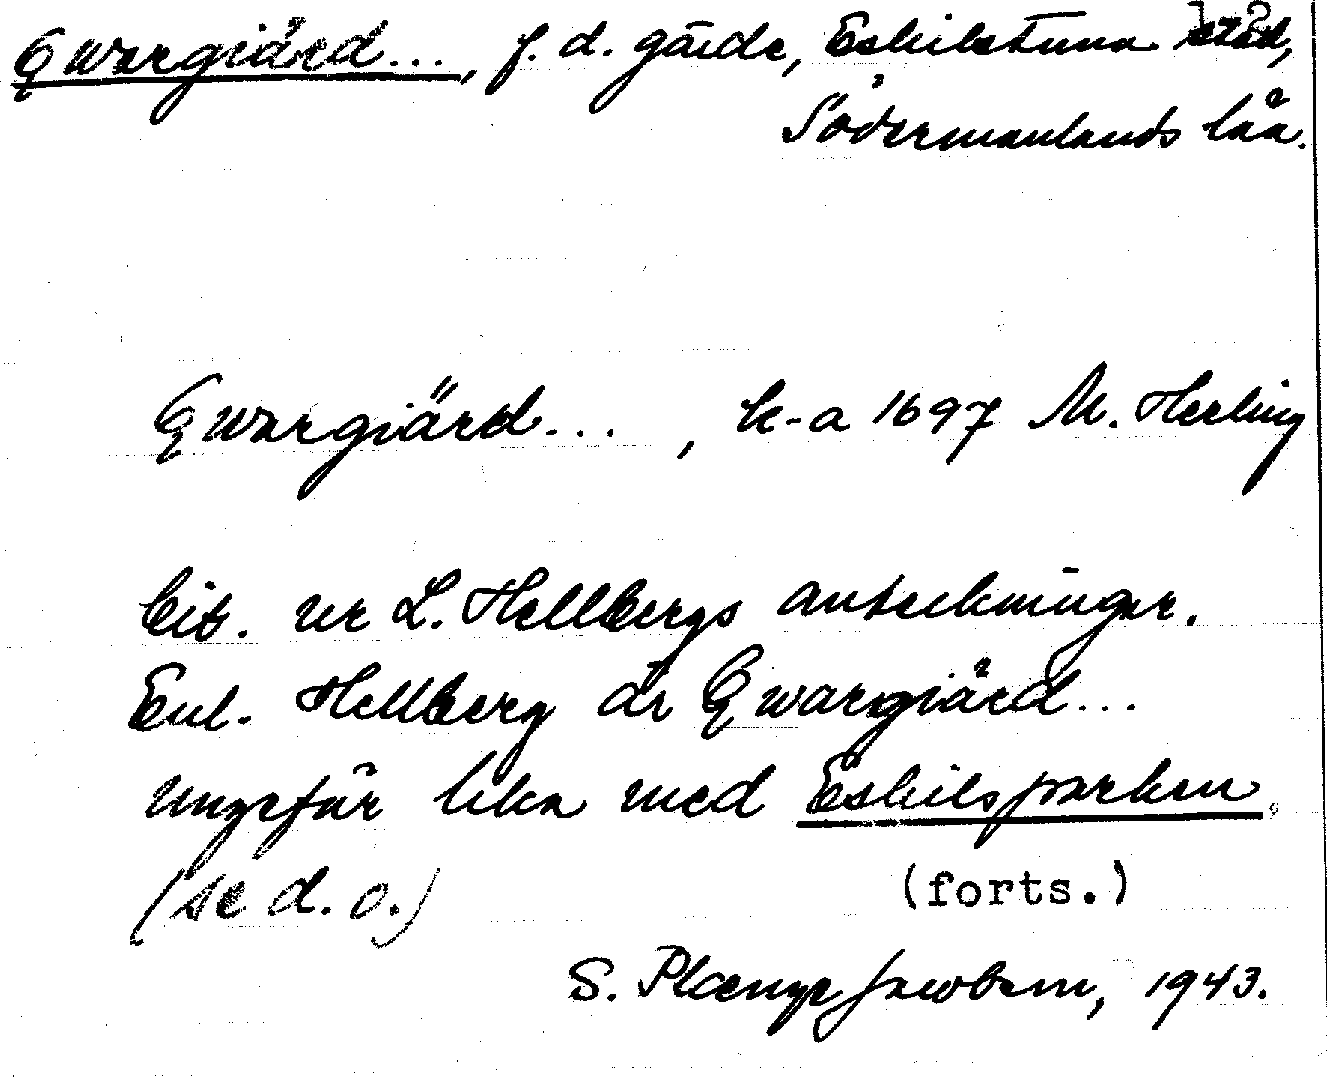 Qwargiärd..., f. d. gärde, Eskilstuna stad,
Södermanlands län.
Qwargiärd... , k-a 1697 M. Herling
Cit. ur L. Hellbergs anteckningar.
Enl. Hellberg är Qwargiärd...
ungefär lika med Eskilsparken.
(se d. o.)
(forts.)
S. Plænge Jacobson, 1943.